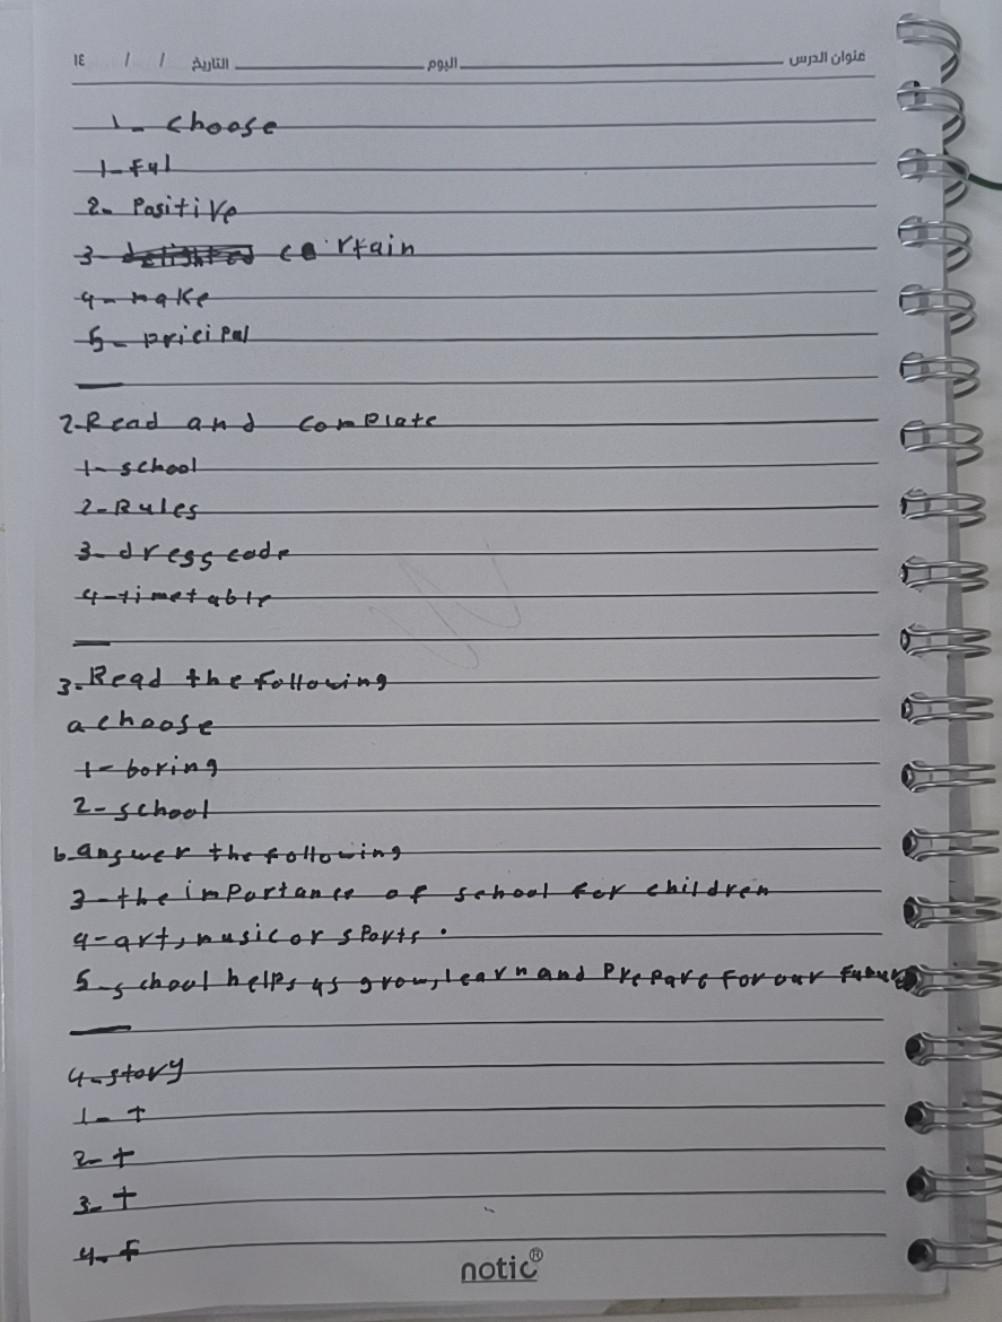 عنوان الدرس اليوم التاريخ / / ١٤
1- choose
1- ful
2- Positive
3- delighted certain
4- make
5- pricipal
2-Read and complate
1- school
2-Rules
3- dress code
4-timetable
3-Read the following
a choose
1- boring
2- school
b-answer the following
3-the importance of school for children
4-art, music or sports.
5-school helps us grow, learn and Prepare for our
4-story
1- t
2- t
3- t
4- f
notic®